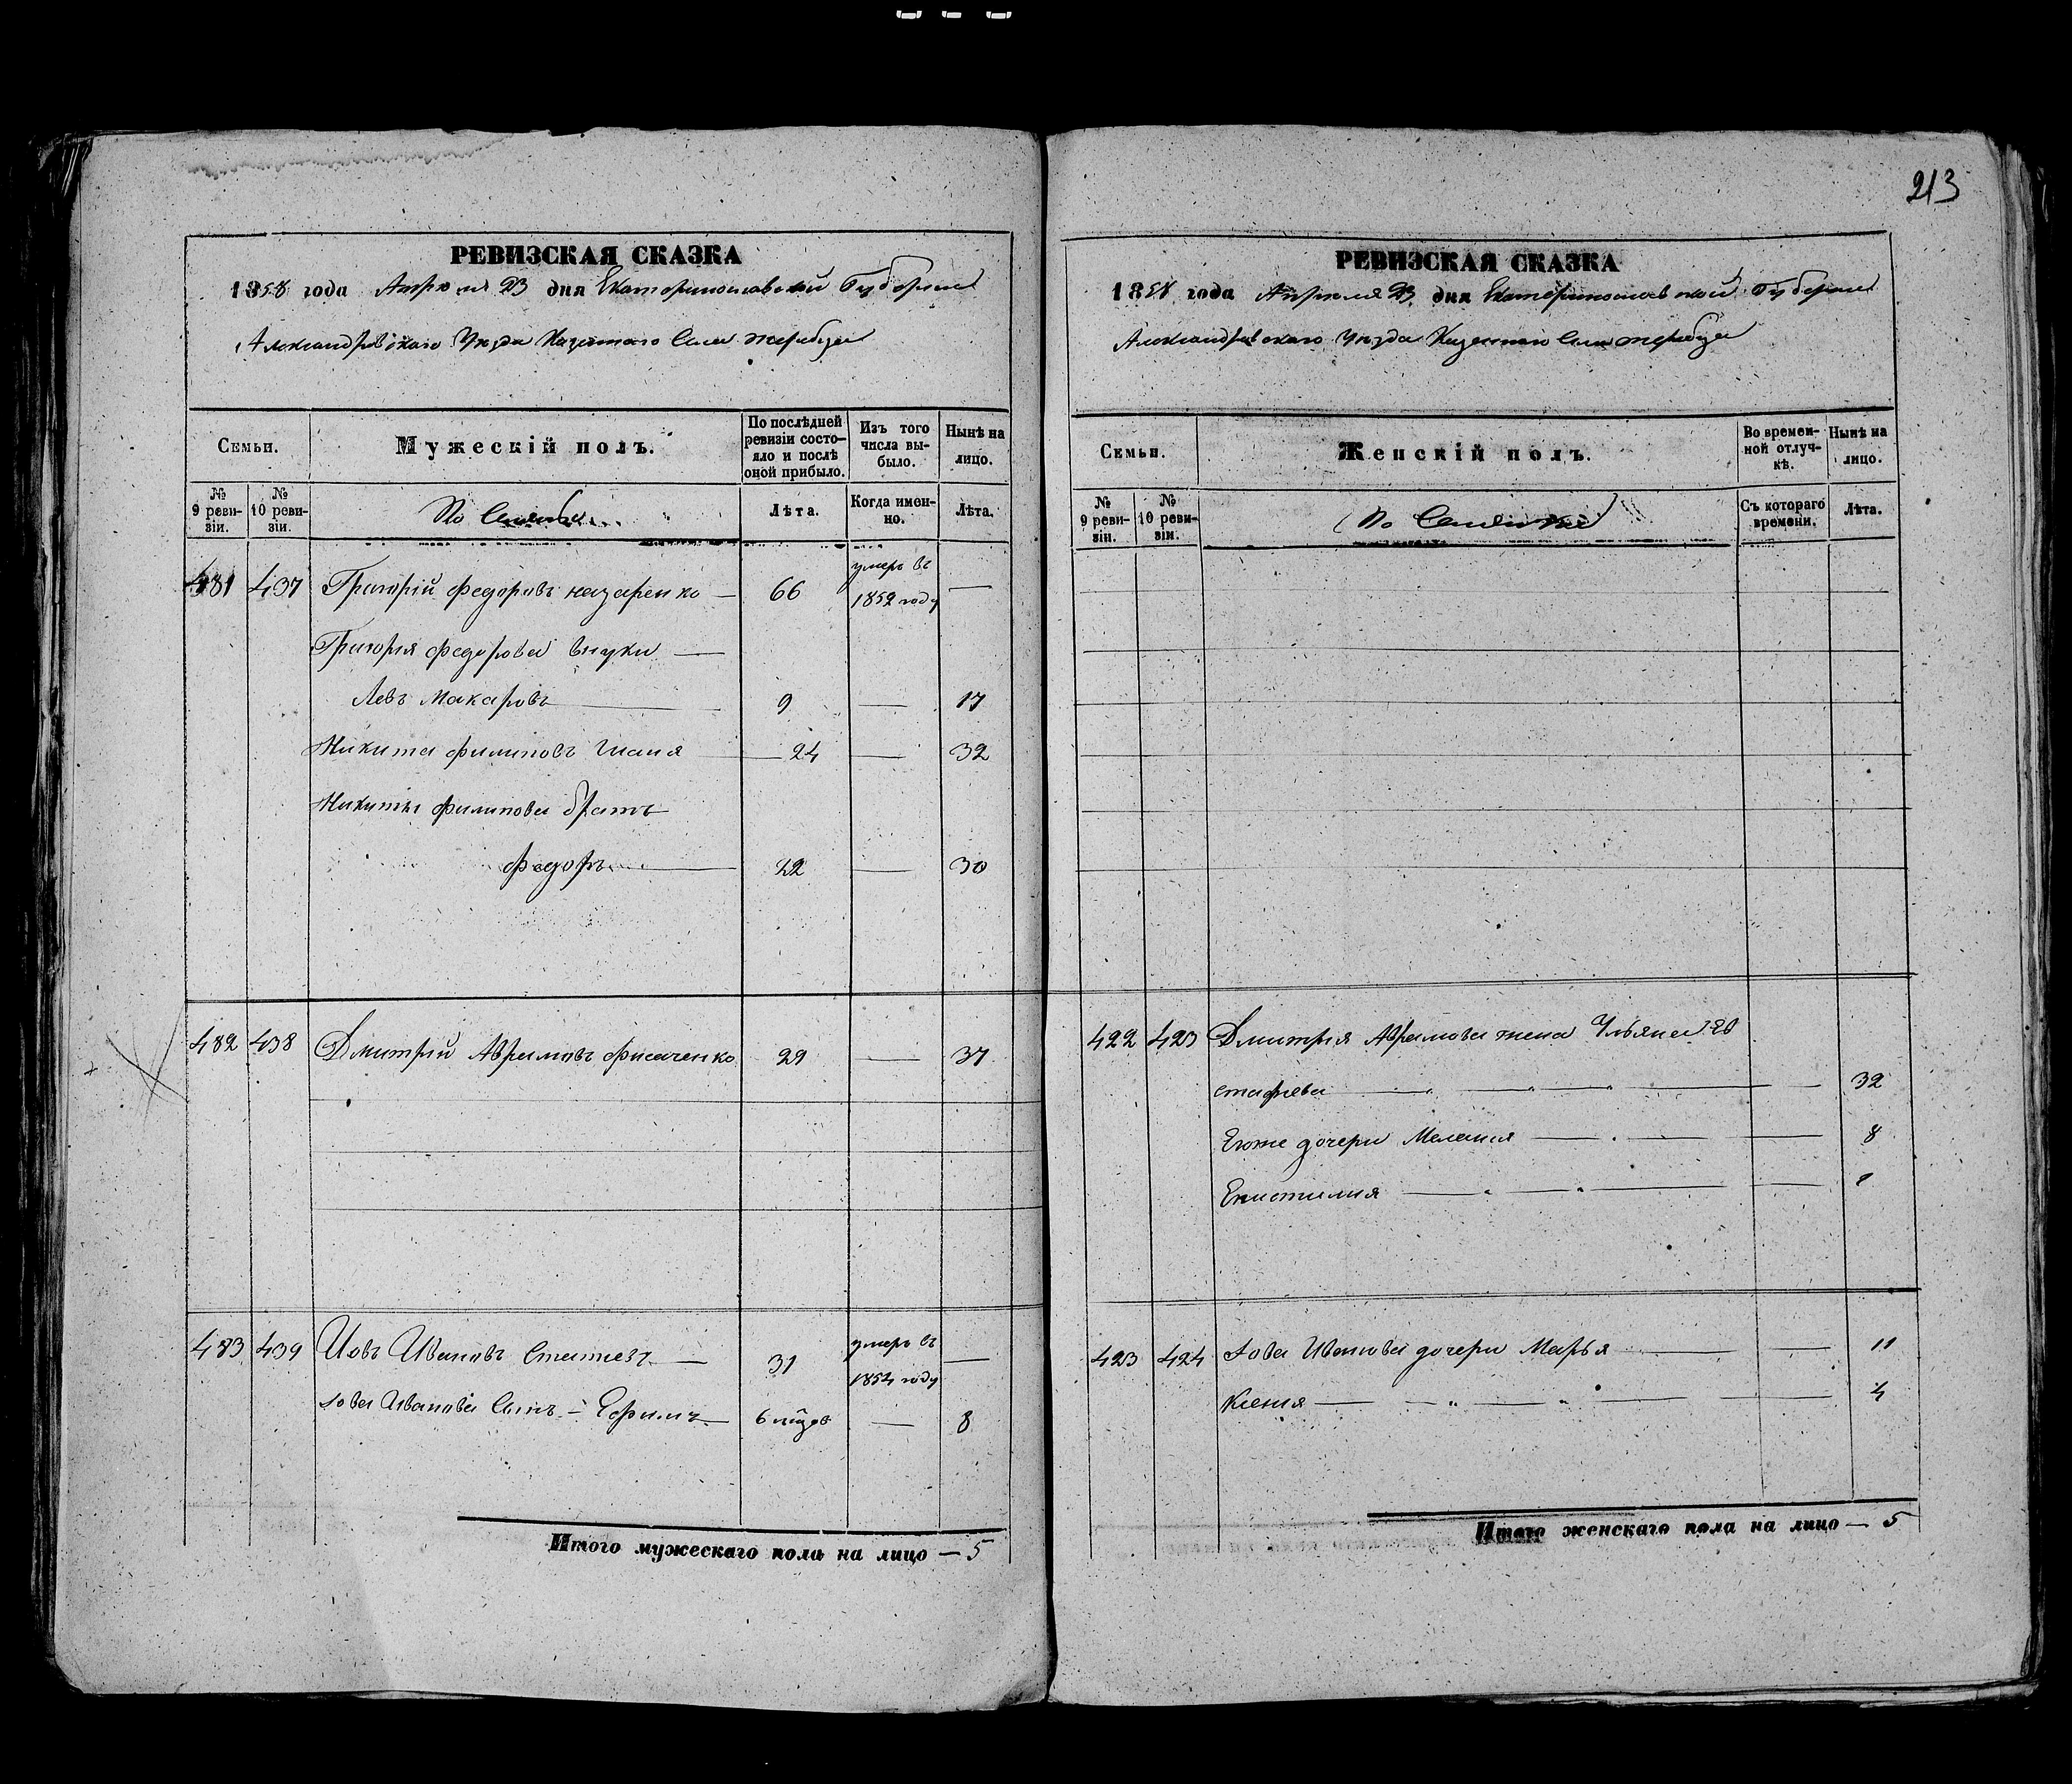 213
РЕВИЗСКАЯ СКАЗКА
1858 года Апреля 23 дня Екатеринославской Губернии
Александровского Уезда Казенного Села Жеребца
Семьи.
Мужескій полъ.
По послѣдней ревизіи состояло и послѣ оной прибыло.
Изъ того числа выбыло.
Нынѣ на лицо.
№ 9 ревизіи.
№ 10 ревизіи.
Лѣта.
Когда именно.
Лѣта.
481 437 Григорій Федоровъ Назаренко — 66 умеръ въ 1852 году —
Григорія Федорова внуки —
Левъ Макаровъ — 9 — 17
Никита Филиповъ — 24 — 32
Никиты Филипова братъ
Федоръ — 22 — 30
482 438 Дмитрій Аврамовъ 29 — 37
483 439 Іовъ Ивановъ — 31 умеръ въ 1854 году —
Іова Иванова Сынъ — Ефимъ — 6 — 8
Итого мужескаго пола на лицо — 5
РЕВИЗСКАЯ СКАЗКА
1858 года Апреля 23 дня Екатеринославской Губернии
Александровского Уезда Казенного Села Жеребца
Семьи.
Женскій полъ.
Во временной отлучкѣ.
Нынѣ на лицо.
№ 9 ревизіи.
№ 10 ревизіи.
Съ котораго времени.
Лѣта.
422 423 Дмитрия Аврамова жена Ульяна Ев
стафіева — — 32
Егоже дочери Мелания — — 8
— — 1
423 424 Іова Иванова дочери Марья — — 11
Ксения — — 4
Итого женскаго пола на лицо — 5